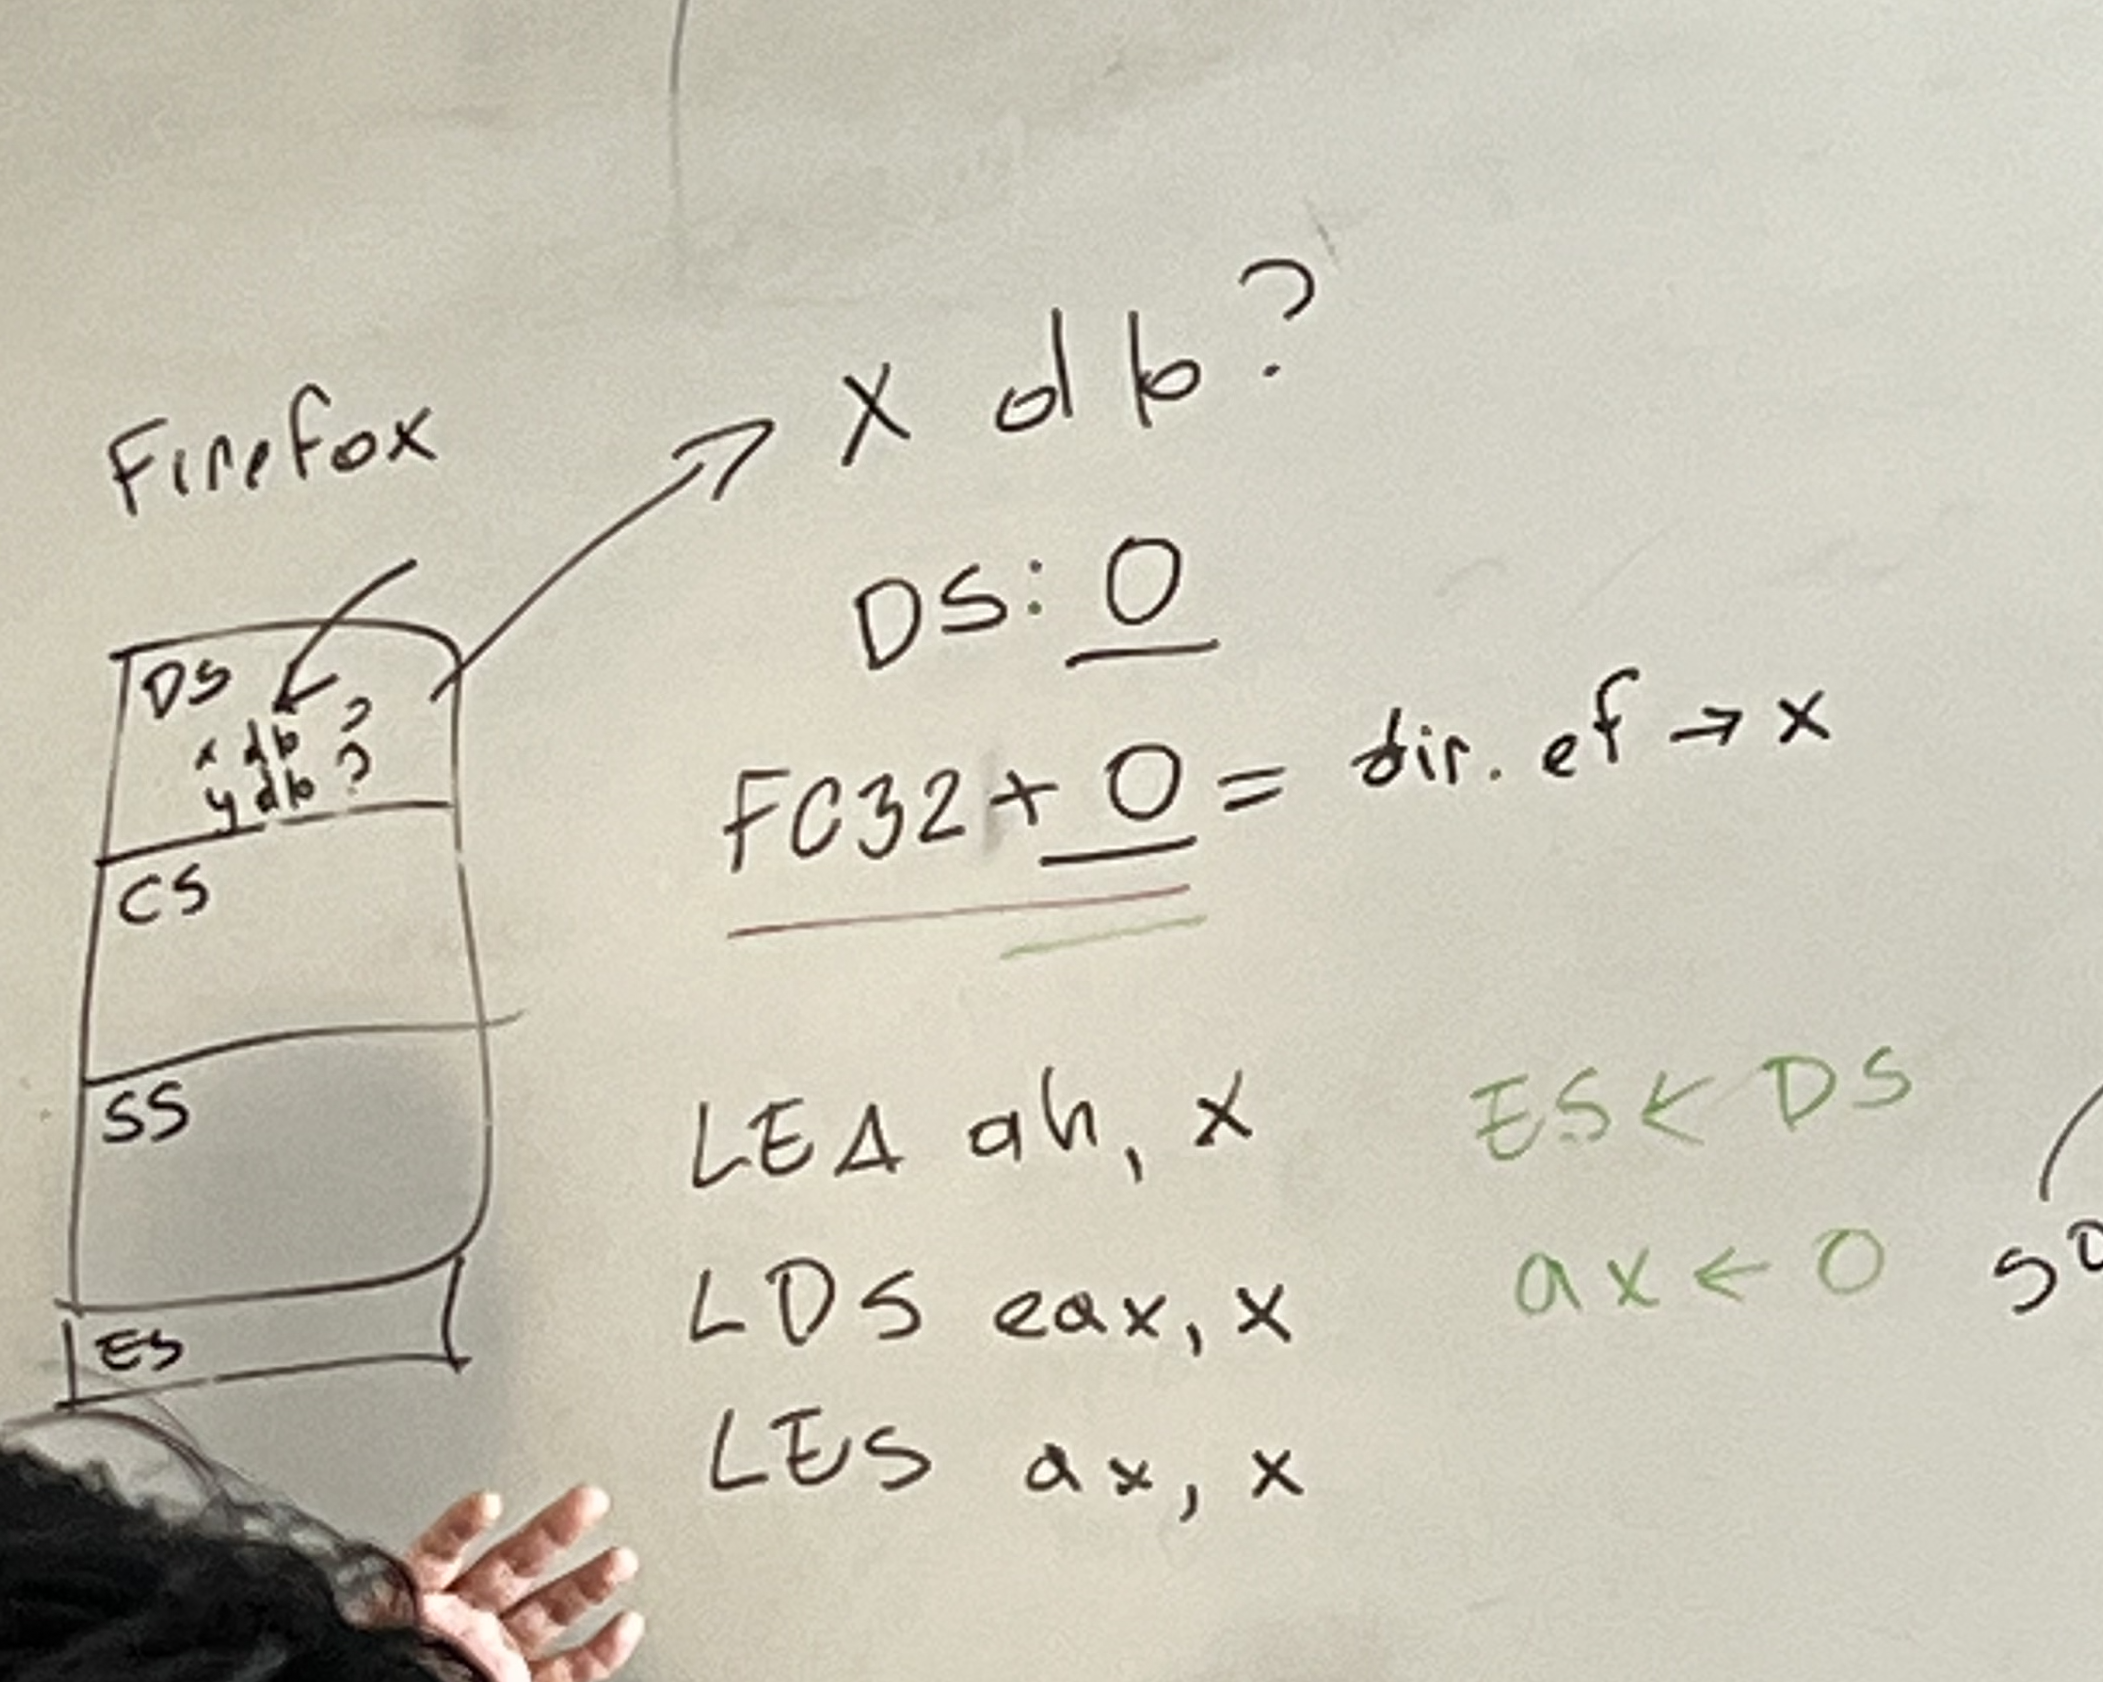 Firefox
DS
x db ?
y db ?
CS
SS
ES
X db?
DS: 0
FC32 + 0 = dir. ef → x
LEA ah, x
LDS eax, x
LES ax, x
ES ← DS
ax ← 0